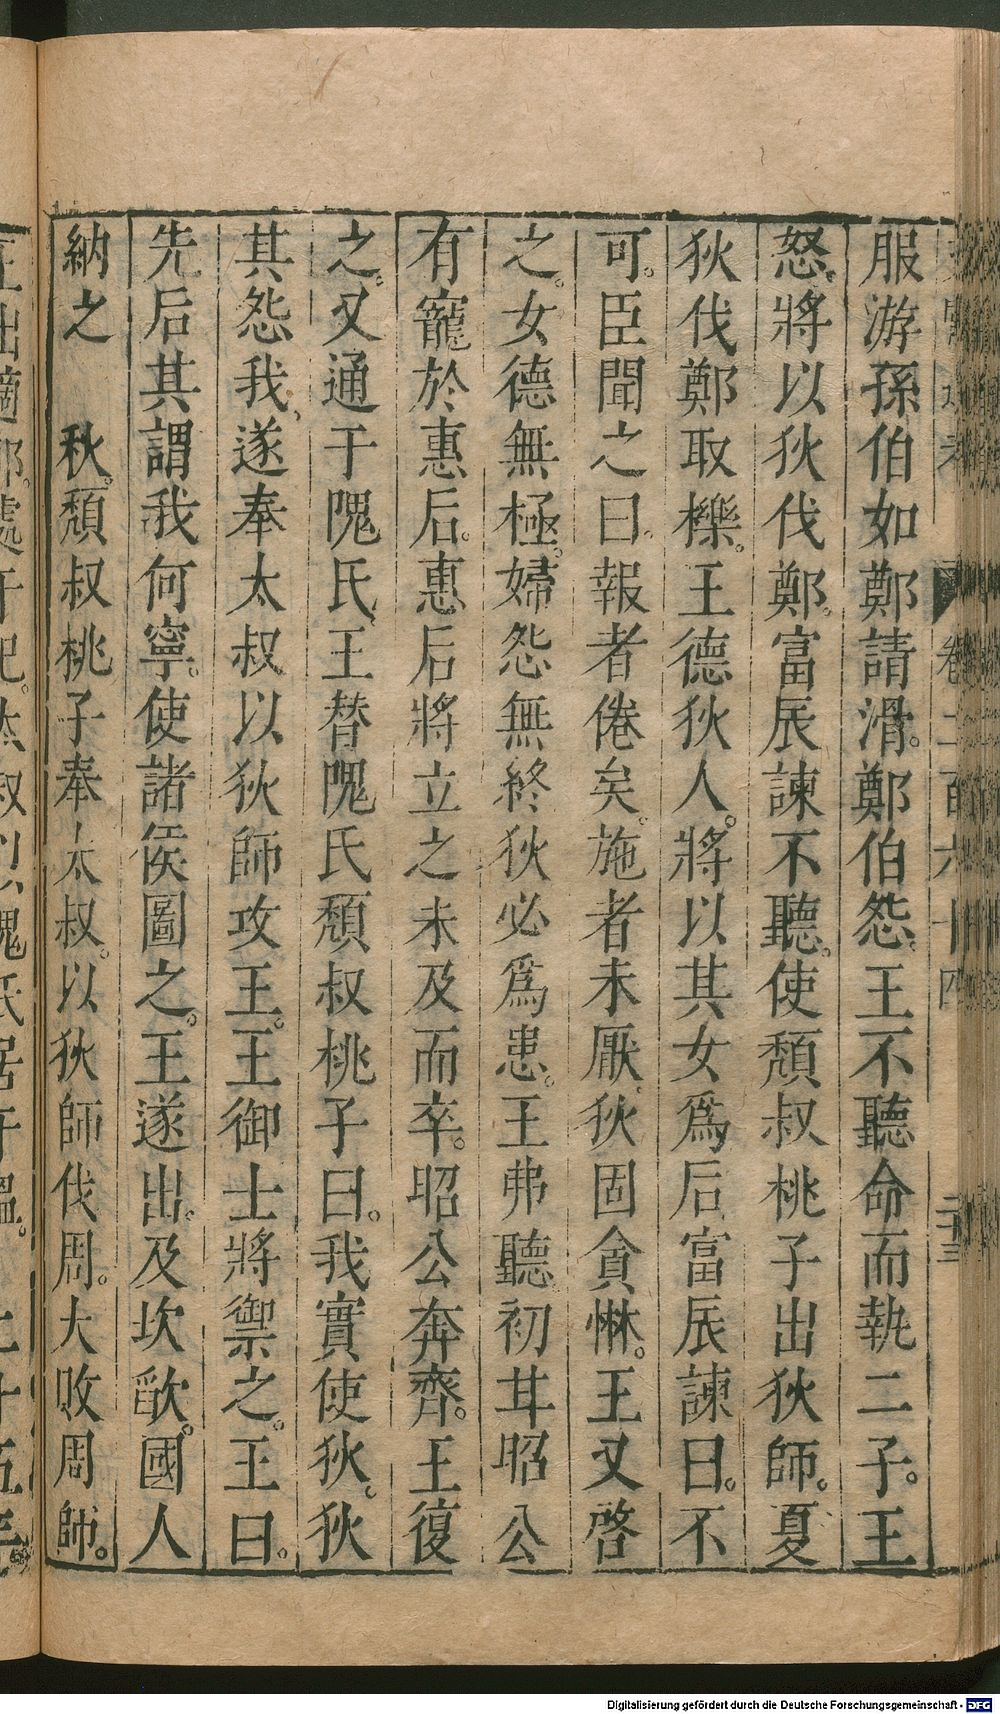 服游孫伯如鄭請滑。鄭伯怨。王不聽命而執二子。王
怒。將以狄伐鄭。富辰諫不聽。使頹叔桃子出狄師。夏
狄伐鄭取櫟。王德狄人。將以其女爲后富辰諫曰。不
可。臣聞之曰。報者倦矣。施者未厭。狄固貪惏。王又啓
之。女德無極。婦怨無終狄必爲患。王弗聽初甘昭公
有寵於惠后。惠后將立之未及而卒。昭公奔齊。王復
之。又通于隗氏。王替隗氏頹叔桃子曰。我實使狄。狄
其怨我。遂奉太叔以狄師攻王。王御士將禦之。王曰。
先后其謂我何寧。使諸侯圖之。王遂出。及坎欿。國人
納之　秋。頹叔桃子奉太叔。以狄師伐周。大敗周師。
卷二百六十四
二十三
Digitalisierung gefördert durch die Deutsche Forschungsgemeinschaft - DFG